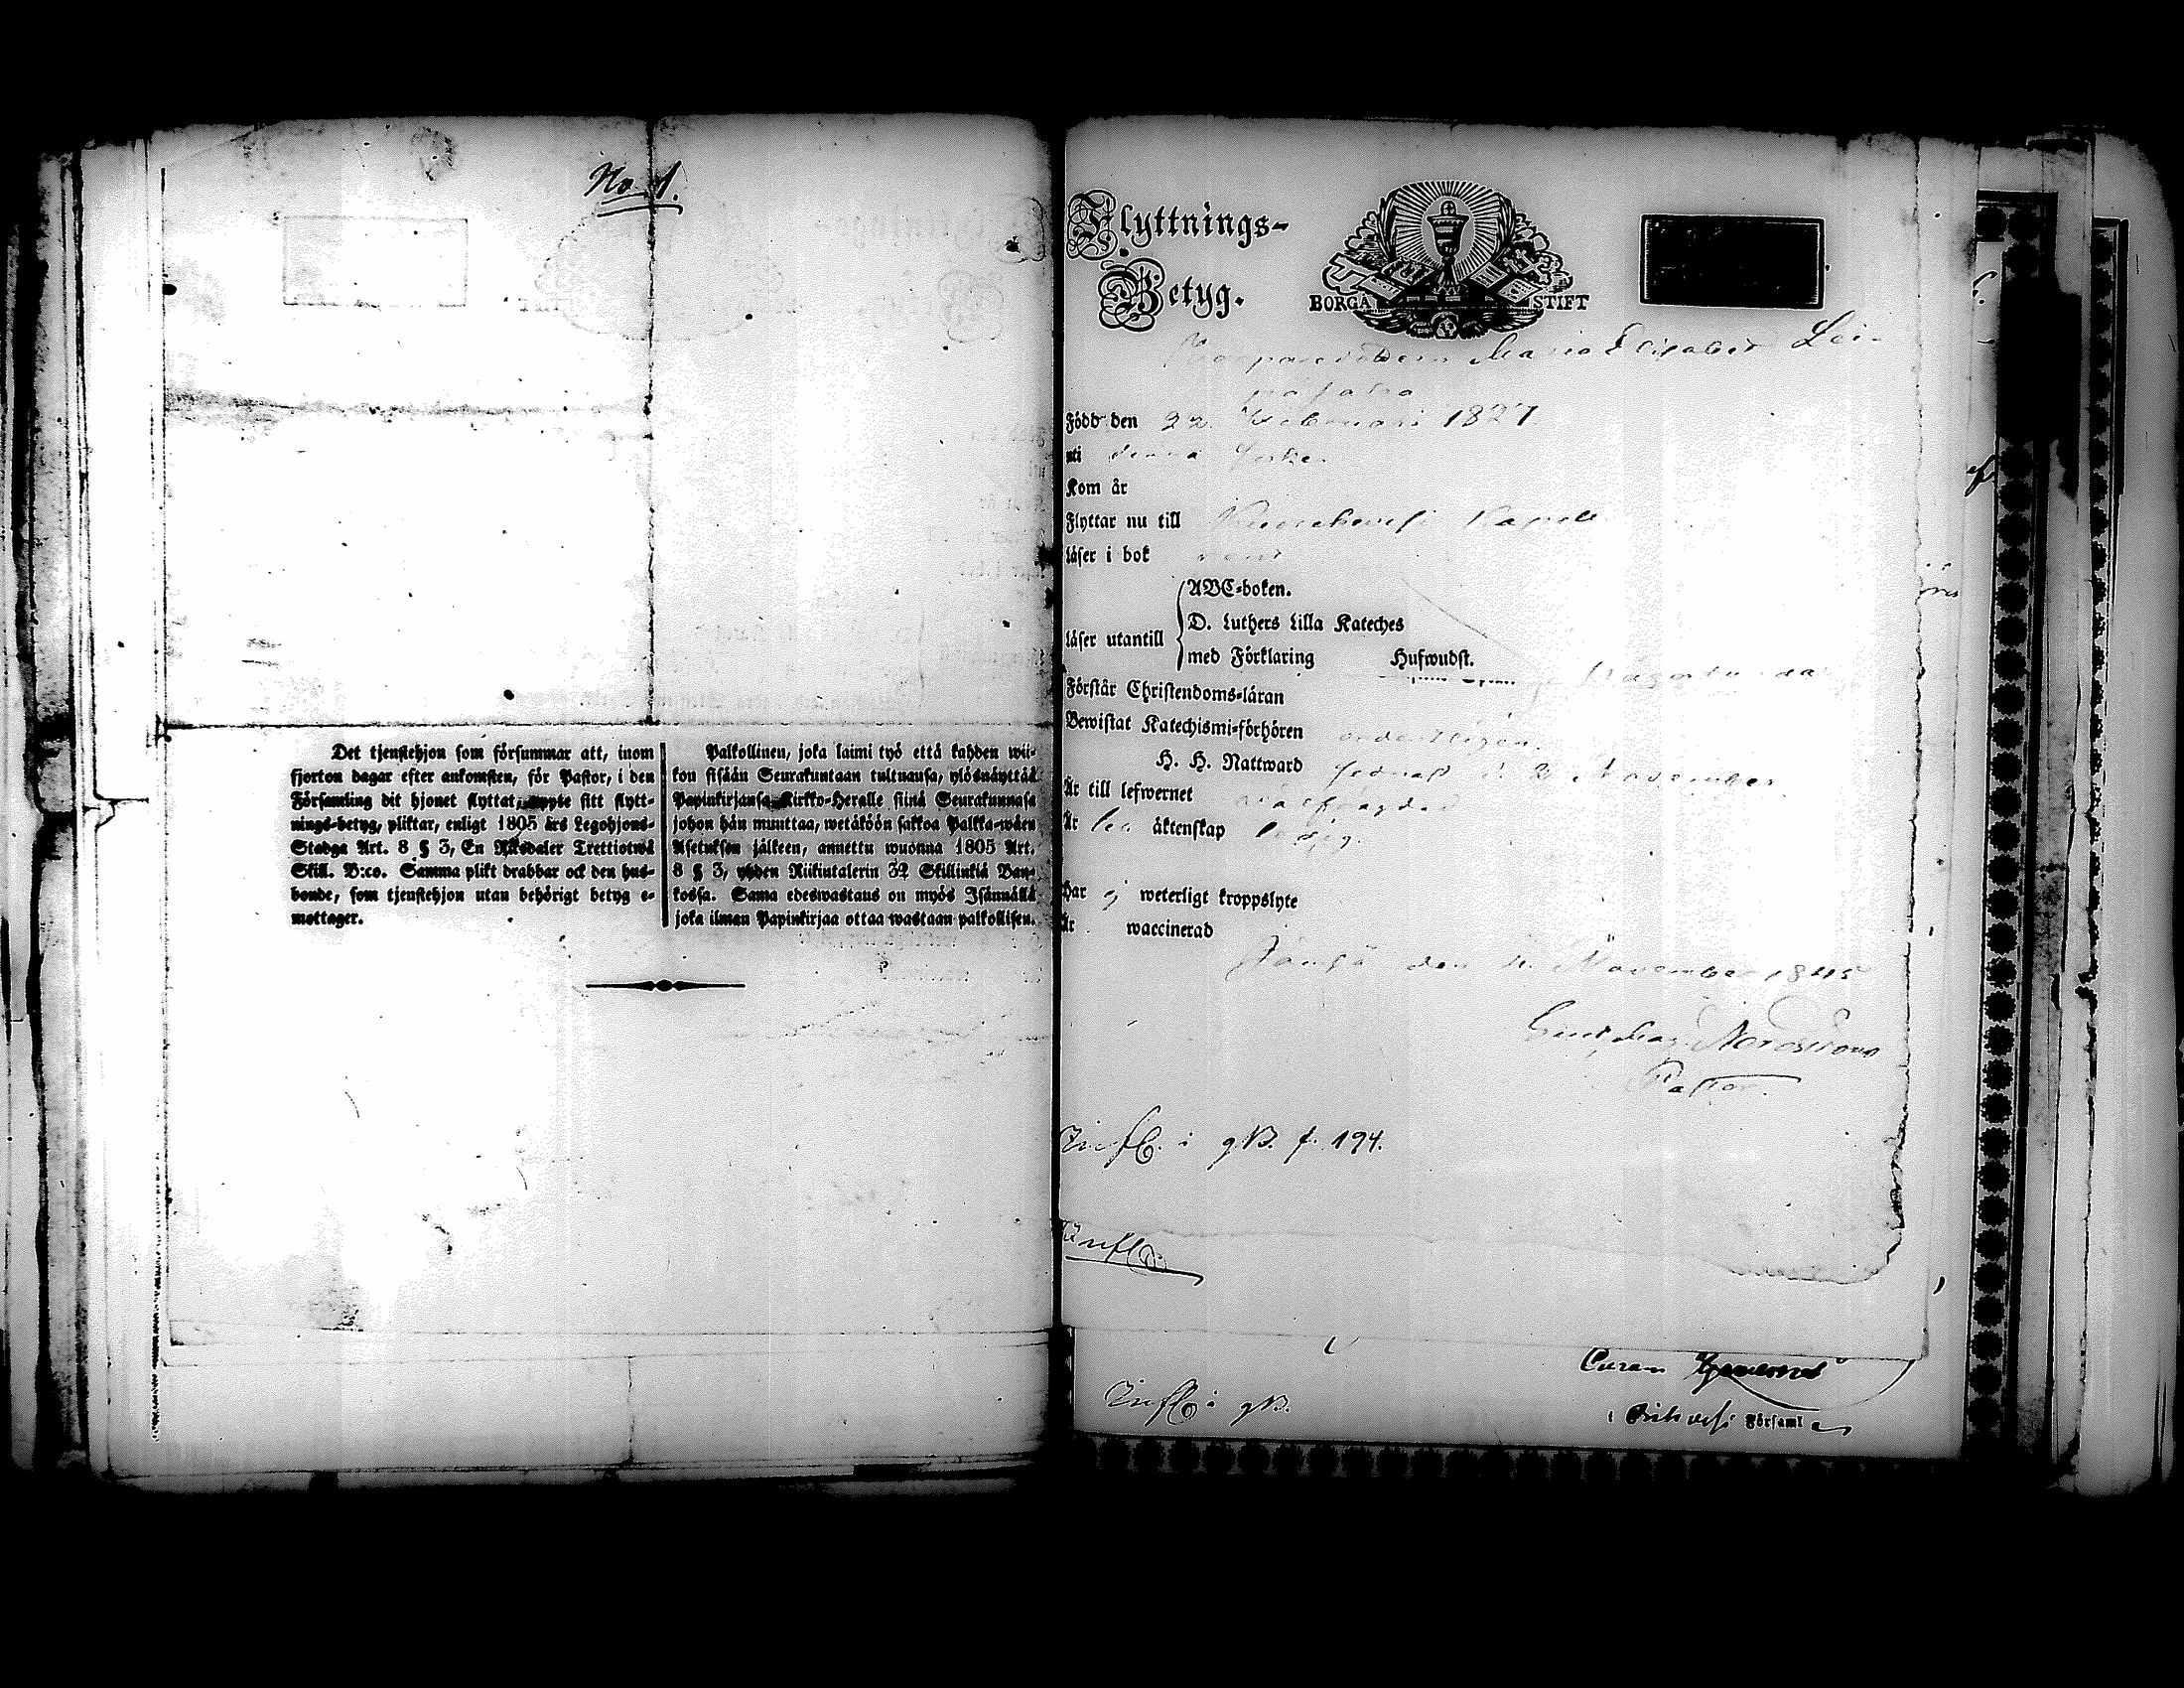 No 1.
Det tjenstehjon som försummar att, inom
fjorton dagar efter ankomsten, för Pastor, i den
Församling dit hjonet flyttat, uppte sitt flytt-
nings-betyg, pliktar, enligt 1805 års Legohjons-
Stadga Art. 8 § 3, En Riksdaler Trettiotwå
Skill. B:co. Samma plikt drabbar ock den hus-
bonde, som tjenstehjon utan behörigt betyg e-
mottager.
Palkollinen, joka laimi lyö että kahden wii-
kon sisään Seurakuntaan tultuansa, ylösnäyttää
Papinkirjansa Kirkko-Heralle siinä Seurakunnasa
johon hän muuttaa, wetäköön sakkoa Palkka-wäen
Asetuksen jälkeen, annettu wuonna 1805 Art.
8 § 3, yhden Riikintalerin 32 Skillinkiä Ban-
kossa. Sama edeswastaus on myös Isännällä
joka ilman Papinkirjaa ottaa wastaan palkollisen.
Flyttnings-
Betyg.
BORGÅ STIFT
Maria Elisabet Lei-
Född den 22 Februari 1827
uti denna Socken
Kom år
Flyttar nu till Kapell
Läser i bok rent
Läser utantill
ABC-boken.
D. Luthers Lilla Kateches
med Förklaring Hufwudst.
Förstår Christendoms-läran
Bewistat Katechismi-förhören ordentligen
H. H. Nattward sednast d. 2 November
Är till lefwernet wälfrägdad
Är till äktenskap ledig.
Har ej weterligt kroppslyte
Är waccinerad
Jämsä den November 1845
Nordström
Pastor.
Infl. i g.B. f. 194.
Infl.
Infl. i g.B.
i Församl